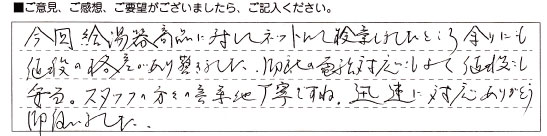 ■ご意見、ご感想、ご要望がございましたら、ご記入ください。
今回給湯器商品に対しネットにて検索しましたところ余りにも
値段の格差があり驚きました。御社の電話対応もよく値段も
安る。スタッフの方々の言葉も丁寧ですね。迅速に対応ありがとう
御座いました。